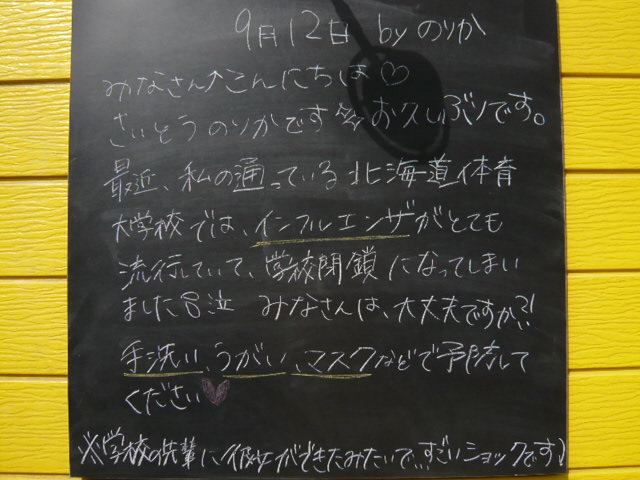 9月12日 by のりか
みなさん↑こんにちは♡
さいとうのりかです☆ お久しぶりです。
最近、私の通っている北海道体育
大学校では、インフルエンザがとても
流行していて、学校閉鎖になってしまい
ました 泣 みなさんは、大丈夫ですか?!
手洗い、うがい、マスクなどで予防して
ください♥
※学校の先輩に彼女ができたみたいで…すごいショックです♪